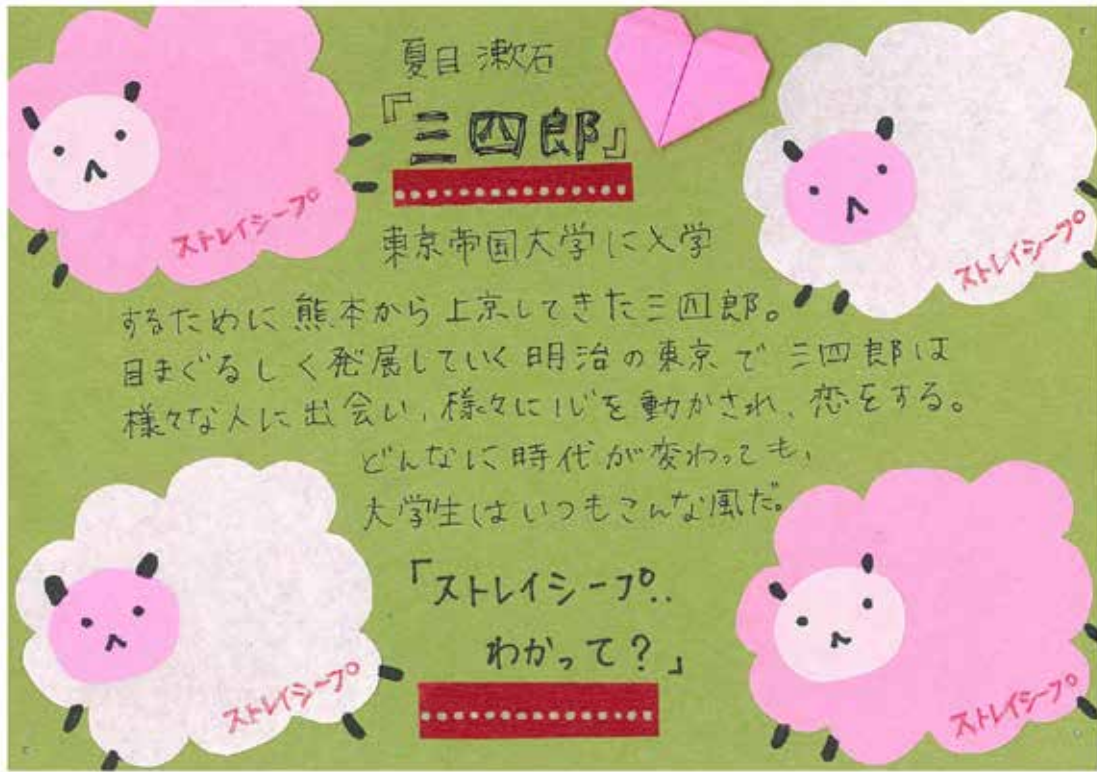 夏目漱石
『三四郎』
ストレイシープ
ストレイシープ
東京帝国大学に入学
するために熊本から上京してきた三四郎。
目まぐるしく発展していく明治の東京で三四郎は
様々な人に出会い、様々に心を動かされ、恋をする。
どんなに時代が変わっても、
大学生はいつもこんな風だ。
「ストレイシープ..
わかって?」
ストレイシープ
ストレイシープ